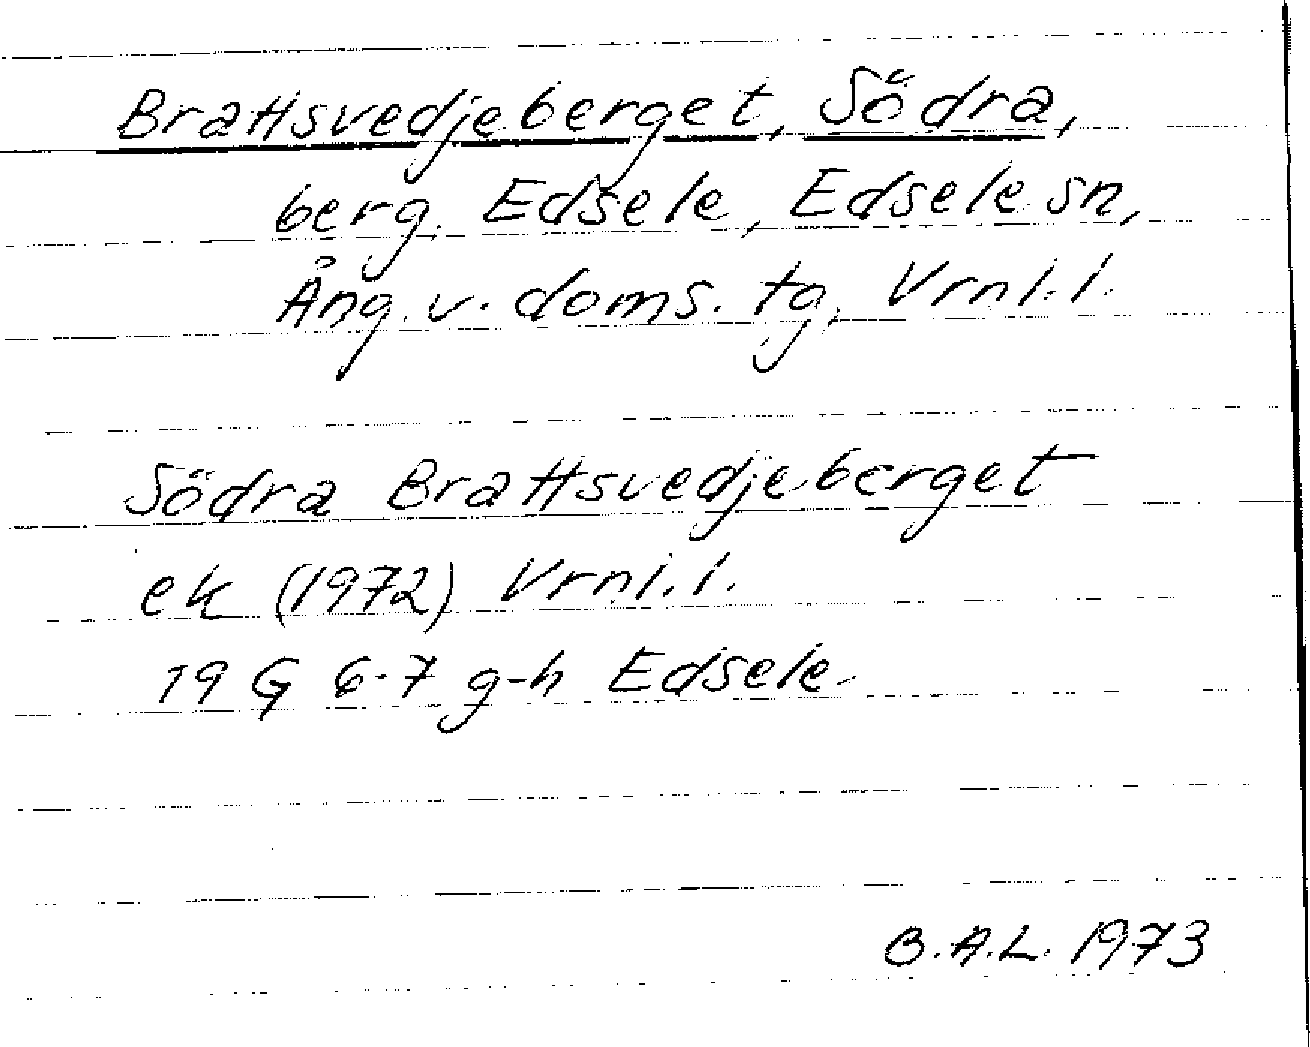 Brattsvedjeberget, Södra,
berg, Edsele, Edsele sn,
Ång. v. doms. tg, Vrnl. l.
Södra Brattsvedjeberget
ek (1972) Vrnl. l.
19 G 6-7 g-h Edsele
B.A.L. 1973